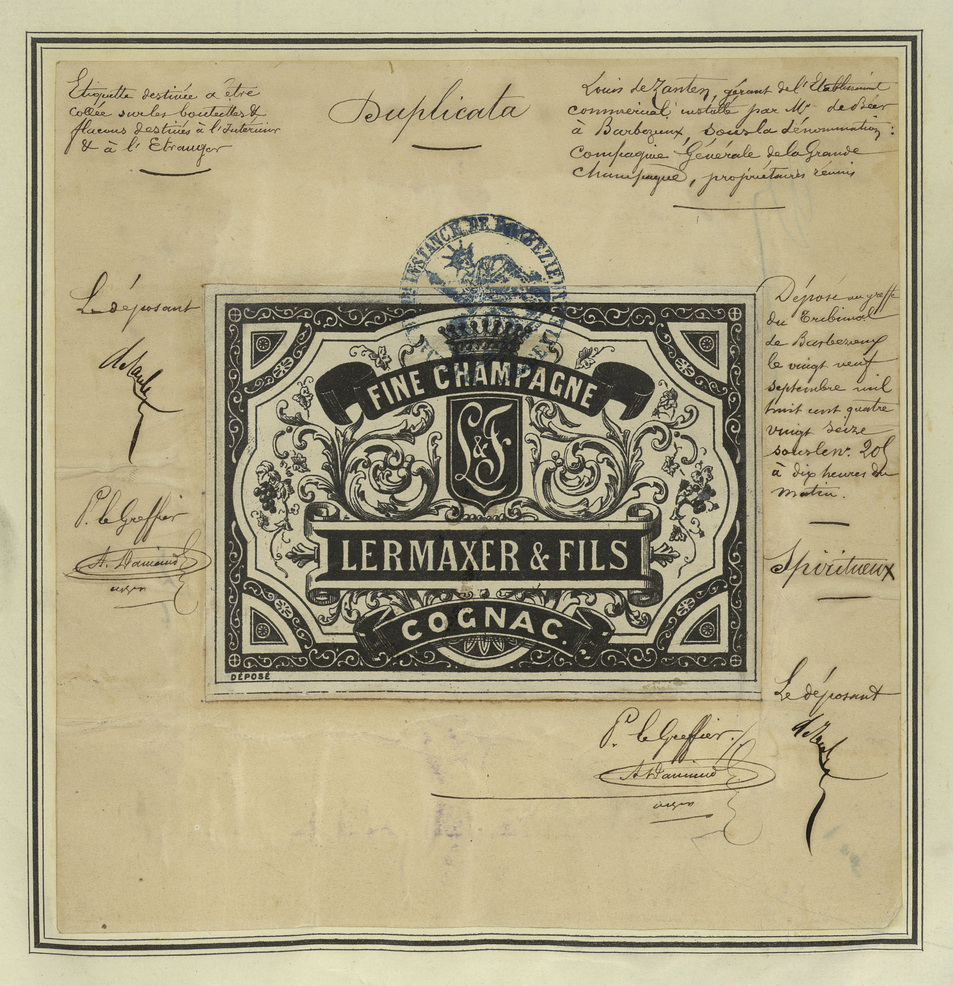 Etiquette destinée a être
collée sur les bouteilles &
flacons destinés à l'Interieur
& à l'Etranger
Duplicata
Louis de Zanten, gérant de l'Etablissement
commercial, installé par Mr. de Beer
à Barbezieux, sous la dénomination:
Compagnie Générale de la Grande
Champagne, propriétaires réunis
INSTANCE DE BARBEZIEUX
Le déposant
P. le Greffier
FINE CHAMPAGNE
L&F
LERMAXER & FILS
COGNAC.
DÉPOSÉ
Déposé au greffe
du Tribunal
de Barbezieux
le vingt neuf
septembre mil
huit cent quatre
vingt seize
sous le no. 205
à dix heures du
matin.
Spiritueux
Le déposant
P. le Greffier.